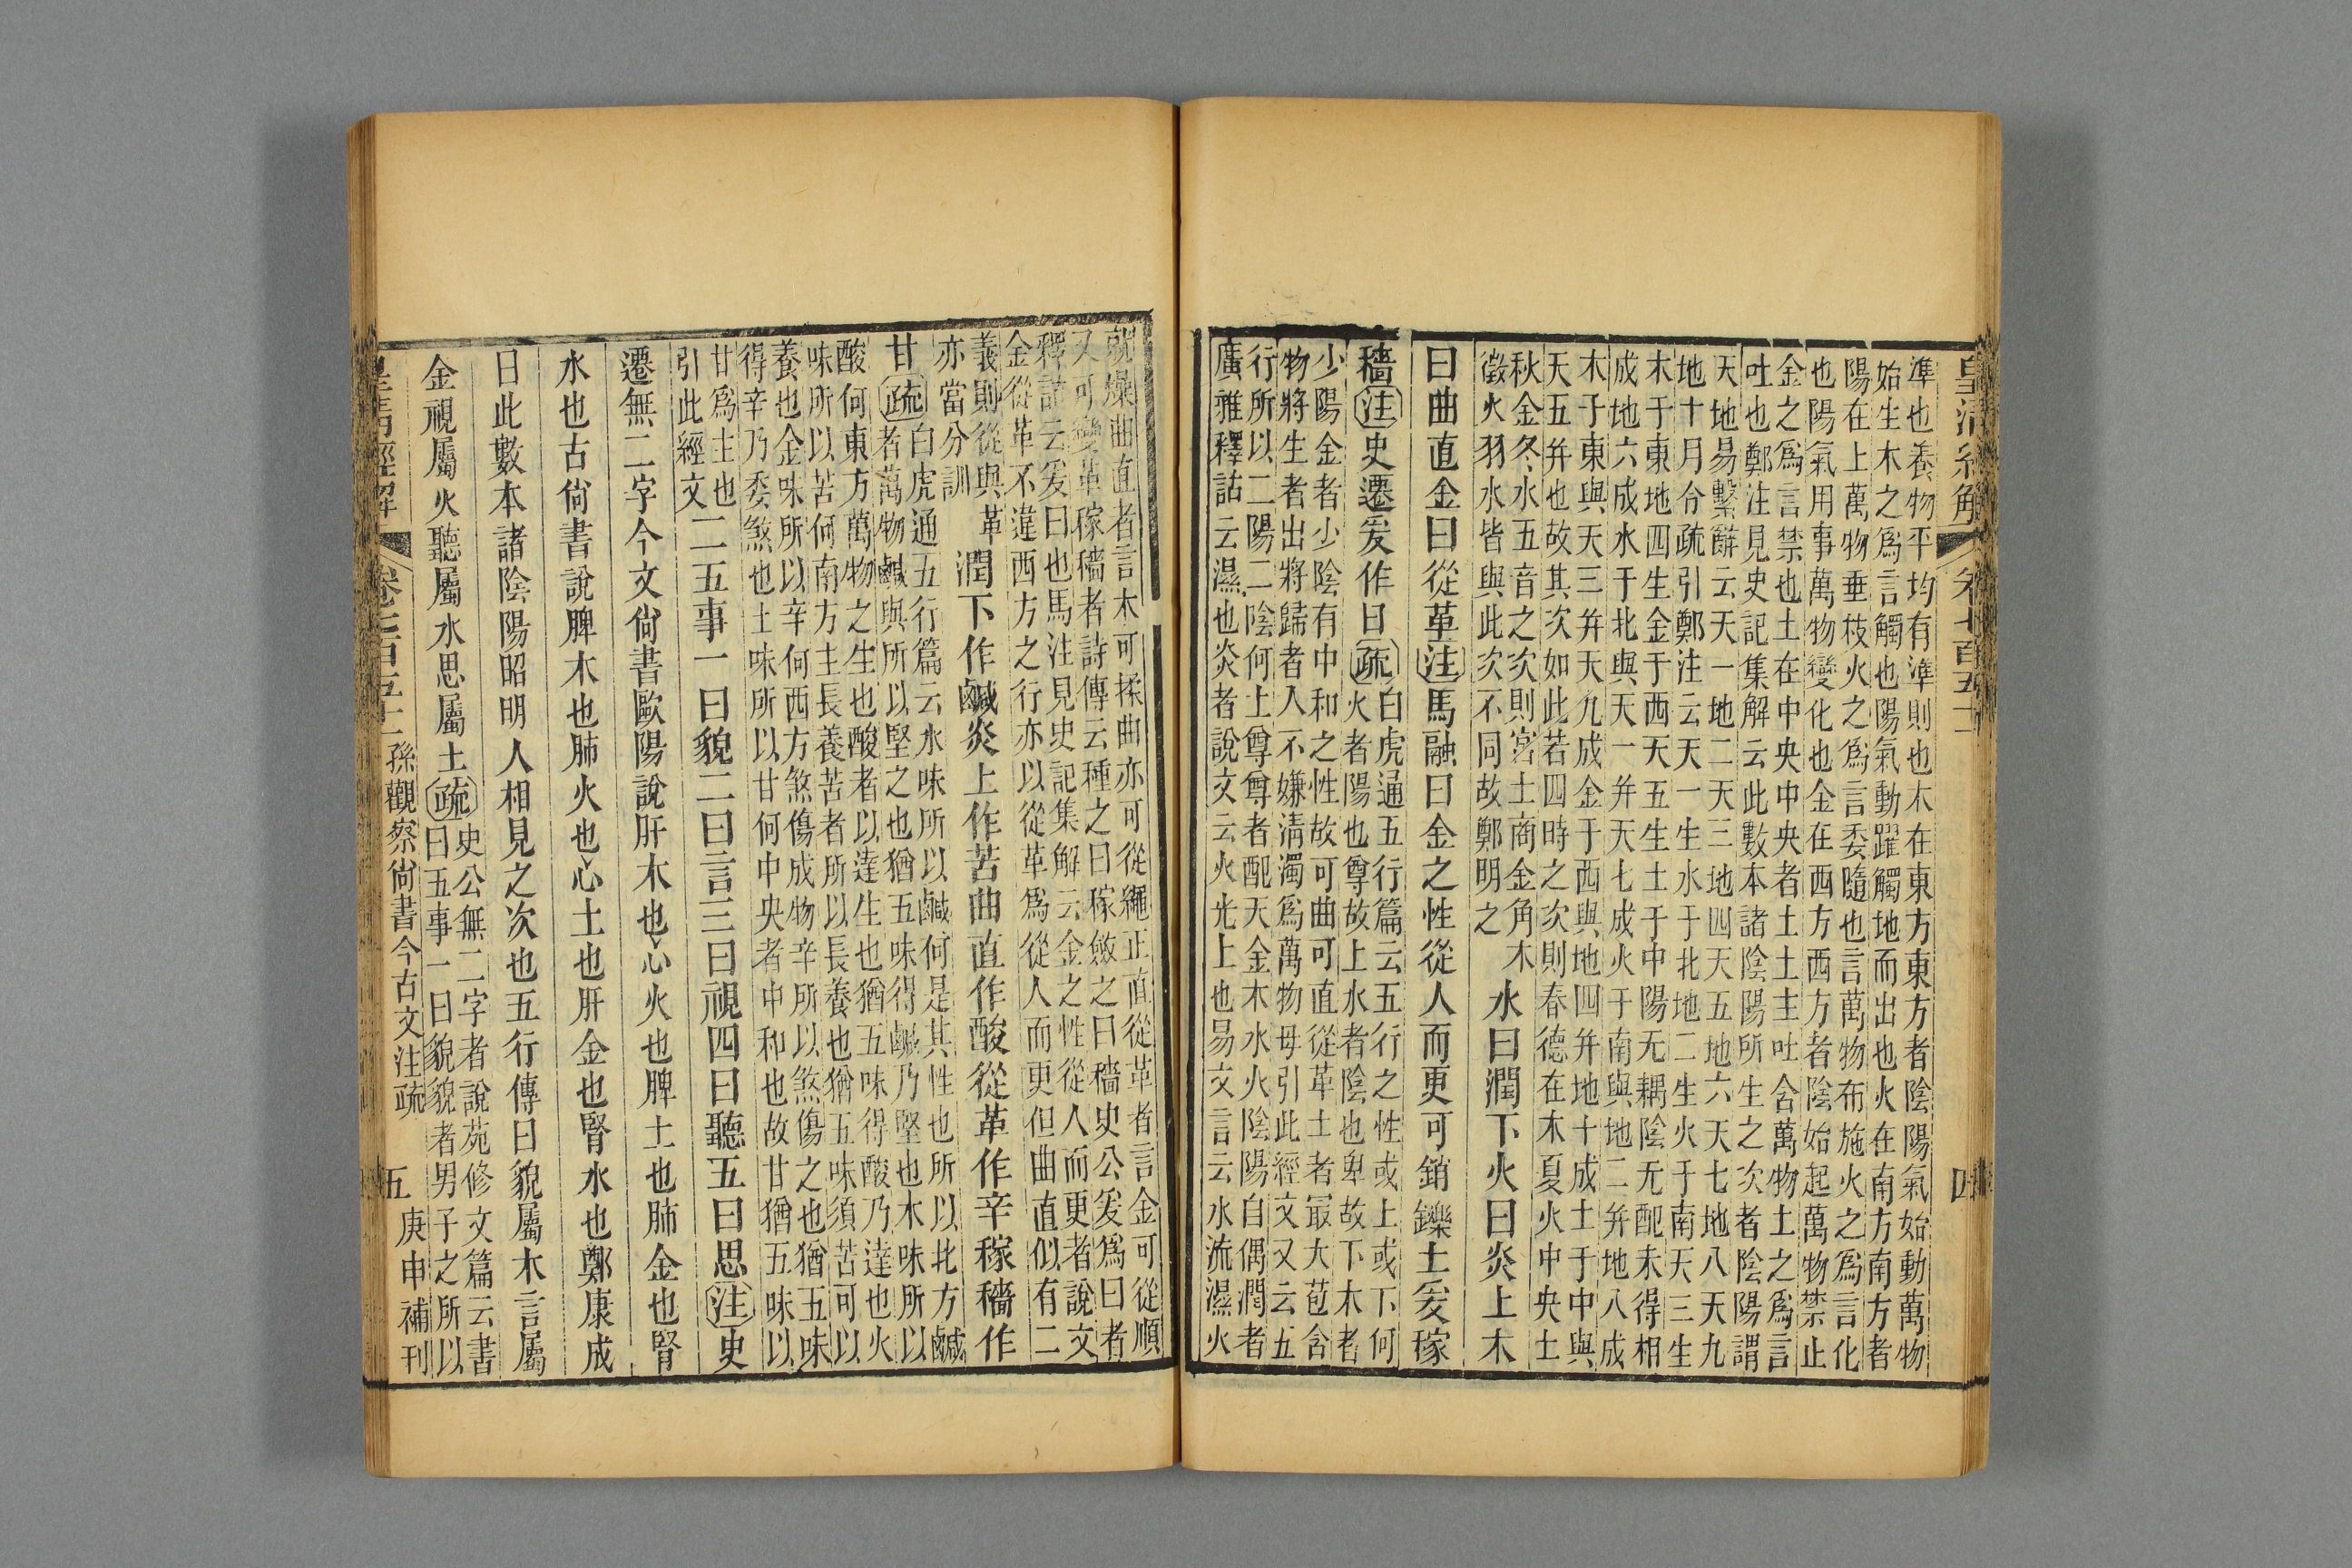 皇清經解 卷七百五十一 四
準也養物平均有準則也木在東方東方者陰陽氣始動萬物
始生木之爲言觸也陽氣動躍觸地而出也火在南方南方者
陽在上萬物垂枝火之爲言委隨也言萬物布施火之爲言化
也陽氣用事萬物變化也金在西方西方者陰始起萬物禁止
金之爲言禁也土在中央中央者土土主吐含萬物土之爲言
吐也鄭注見史記集解云此數本諸陰陽所生之次者陰陽謂
天地易繫辭云天一地二天三地四天五地六天七地八天九
地十月令疏引鄭注云天一生水于北地二生火于南天三生
木于東地四生金于西天五生土于中陽无耦陰无配未得相
成地六成水于北與天一并天七成火于南與地二并地八成
木于東與天三并天九成金于西與地四并地十成土于中與
天五并也故其次如此若四時之次則春德在木夏火中央土
秋金冬水五音之次則宮土商金角木
徵火羽水皆與此次不同故鄭明之
水曰潤下火曰炎上木
曰曲直金曰從革注馬融曰金之性從人而更可銷鑠土爰稼
穡注史遷爰作曰疏
白虎通五行篇云五行之性或上或下何
火者陽也尊故上水者陰也卑故下木者
少陽金者少陰有中和之性故可曲可直從革土者㝡大苞含
物將生者出將歸者入不嫌清濁爲萬物母引此經文又云五
行所以二陽二陰何土尊尊者配天金木水火陰陽自偶潤者
廣雅釋詁云濕也炎者說文云火光上也易文言云水流濕火
就燥曲直者言木可揉曲亦可從繩正直從革者言金可從順
又可變革稼穡者詩傳云種之曰稼斂之曰穡史公爰爲曰者
釋詁云爰曰也馬注見史記集解云金之性從人而更者說文
金從革不違西方之行亦以從革爲從人而更但曲直似有二
義則從與革
亦當分訓
潤下作鹹炎上作苦曲直作酸從革作辛稼穡作
甘疏
白虎通五行篇云水味所以鹹何是其性也所以北方鹹
者萬物鹹與所以堅之也猶五味得鹹乃堅也木味所以
酸何東方萬物之生也酸者以達生也猶五味得酸乃達也火
味所以苦何南方主長養苦者所以長養也猶五味須苦可以
養也金味所以辛何西方煞傷成物辛所以煞傷之也猶五味
得辛乃委煞也土味所以甘何中央者中和也故甘猶五味以
甘爲主也
引此經文
二五事一曰貌二曰言三曰視四曰聽五曰思注史
遷無二字今文尙書歐陽說肝木也心火也脾土也肺金也腎
水也古尙書說脾木也肺火也心土也肝金也腎水也鄭康成
曰此數本諸陰陽昭明人相見之次也五行傳曰貌屬木言屬
金視屬火聽屬水思屬土疏
史公無二字者說苑修文篇云書
曰五事一曰貌貌者男子之所以
皇清經解 卷七百五十一 孫觀察尙書今古文注疏 五 庚申補刊